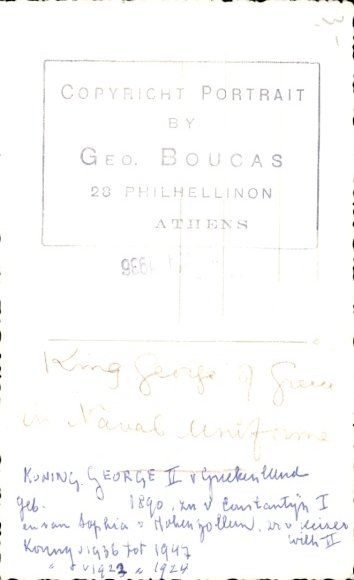 COPYRICHT PORTRAIT
BY
GEO. BOUCAS
28 PHILHELLINON
ATHENS
1936
King George of Greece
in Naval Uniforme
KONING GEORGE II v Griekenland
geb. 1890, zn v Constantijn I
en van Sophia v Hohenzollern, zr v
Wilh II
Koning v 1936 tot 1947
" v 1922 " 1924